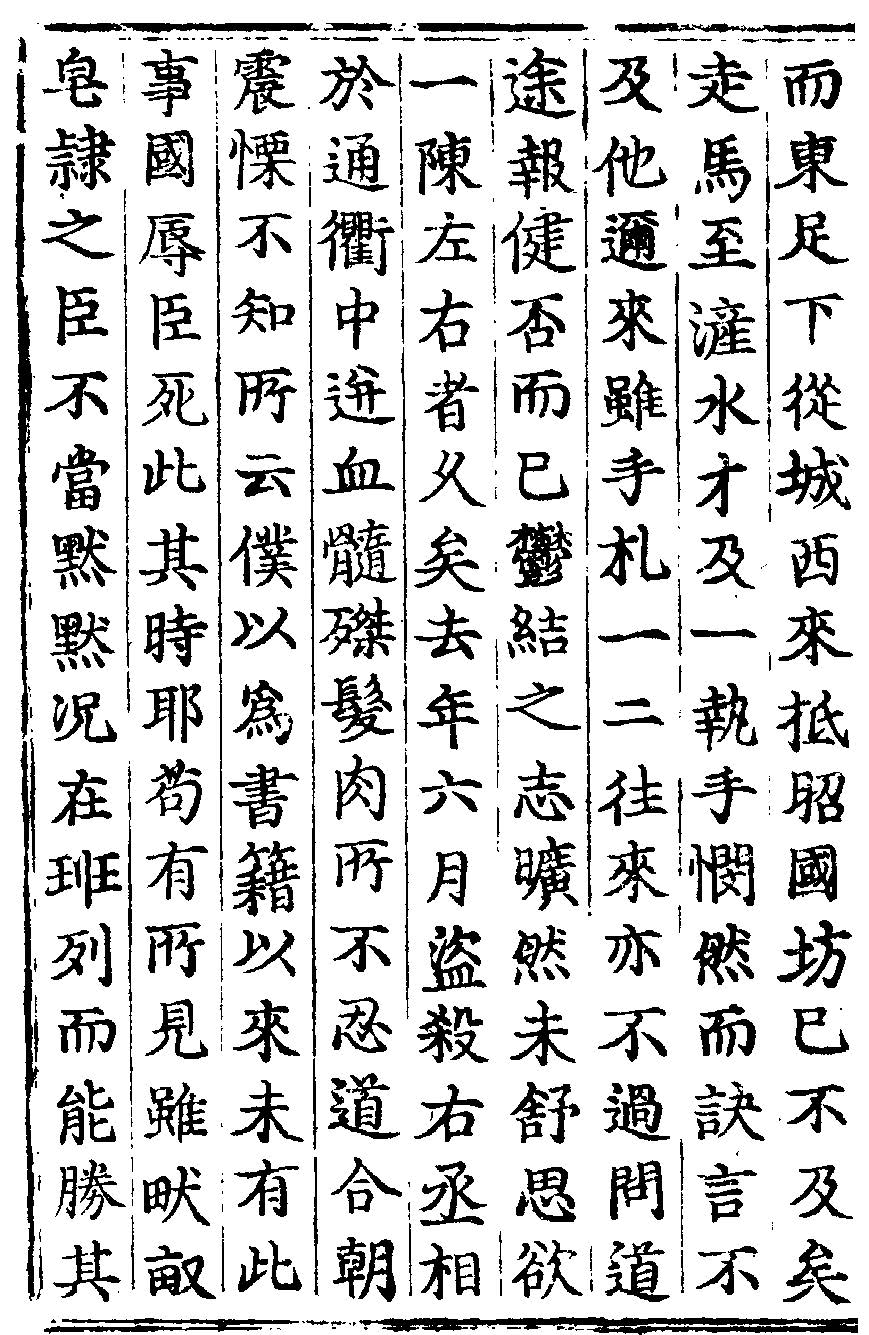 而東足下從城西來抵昭國坊已不及矣
走馬至滻水才及一執手憫然而訣言不
及他邇來雖手札一二往來亦不過問道
途報健否而已鬱結之志曠然未舒思欲
一陳左右者乆矣去年六月盜殺右丞相
於通衢中迸血髓磔髮肉所不忍道合朝
震慄不知所云僕以爲書籍以來未有此
事國辱臣死此其時耶苟有所見雖畎畝
皂隷之臣不當默默况在班列而能勝其